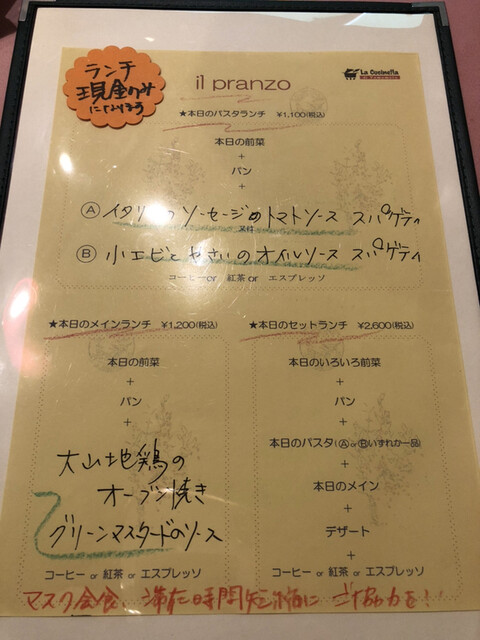 ランチ
現金のみ
になります
il pranzo
La Cucinella
★本日のパスタランチ ¥1,100(税込)
本日の前菜
+
パン
+
Ⓐ イタリアのソーセージのトマトソース スパゲティ
又は
Ⓑ 小エビとやさいのオイルソース スパゲティ
コーヒーor 紅茶 or エスプレッソ
★本日のメインランチ ¥1,200(税込)
本日の前菜
+
パン
+
大山地鶏の
オーブン焼き
グリーンマスタードのソース
コーヒー or 紅茶 or エスプレッソ
★本日のセットランチ ¥2,600(税込)
本日のいろいろ前菜
+
パン
+
本日のパスタ(Ⓐ or Ⓑいずれか一品)
+
本日のメイン
+
デザート
+
コーヒー or 紅茶 or エスプレッソ
マスク会食、滞在時間短縮に ご協力を!!